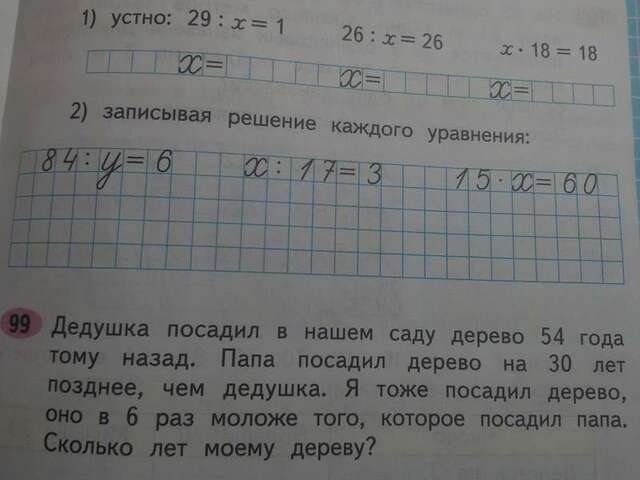 1) устно: 29 : x = 1 26 : x = 26 x · 18 = 18
x = x = x =
2) записывая решение каждого уравнения:
84 : y = 6 x : 17 = 3 15 · x = 60
99 Дедушка посадил в нашем саду дерево 54 года
тому назад. Папа посадил дерево на 30 лет
позднее, чем дедушка. Я тоже посадил дерево,
оно в 6 раз моложе того, которое посадил папа.
Сколько лет моему дереву?